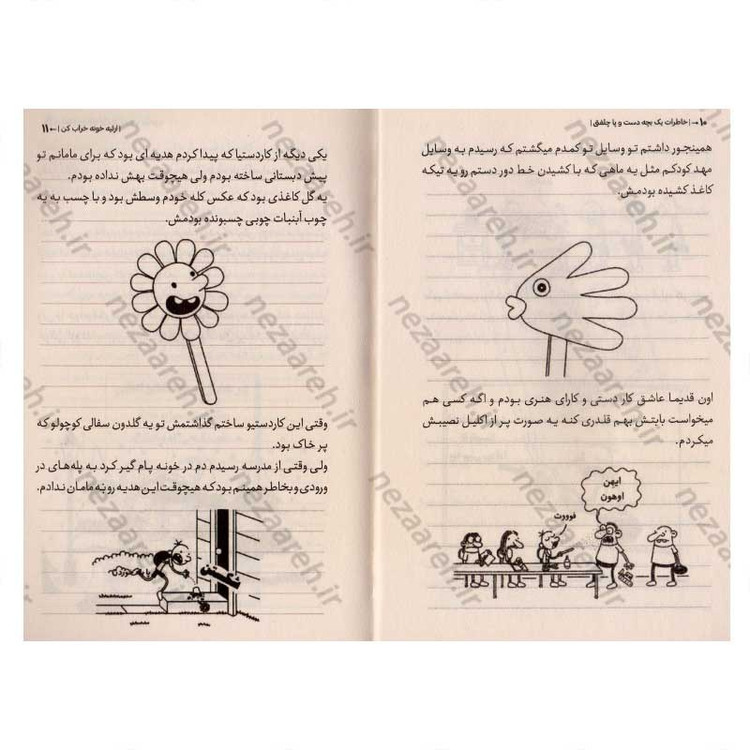 ۱۰ ← | خاطرات یک بچه دست و پا چلفتی |
همینجور داشتم تو وسایل تو کمدم میگشتم که رسیدم به وسایل
مهد کودکم مثل یه ماهی که با کشیدن خط دور دستم رو یه تیکه
کاغذ کشیده بودمش.
اون قدیما عاشق کار دستی و کارای هنری بودم و اگه کسی هم
میخواست بابتش بهم قلدری کنه یه صورت پر از اکلیل نصیبش
میکردم.
ایهن
اوهون
فوووت
| ارثیه خونه خراب کن | ← ۱۱
یکی دیگه از کاردستیا که پیدا کردم هدیه ای بود که برای مامانم تو
پیش دبستانی ساخته بودم ولی هیچوقت بهش نداده بودم.
یه گل کاغذی بود که عکس کله خودم وسطش بود و با چسب به یه
چوب آبنبات چوبی چسبونده بودمش.
وقتی این کاردستیو ساختم گذاشتمش تو یه گلدون سفالی کوچولو که
پر خاک بود.
ولی وقتی از مدرسه رسیدم دم در خونه پام گیر کرد به پله‌های در
ورودی و بخاطر همینم بود که هیچوقت این هدیه رو به مامان ندادم.
nezaareh.ir